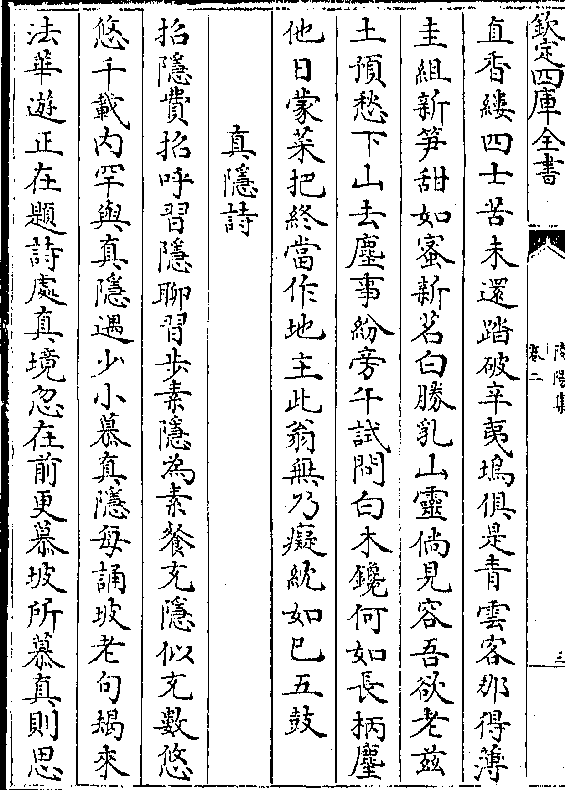 欽定四庫全書
卷二
三
直香縷四士苦未還踏破辛夷塢俱是青雲客那得薄
圭組新笋甜如蜜新茗白勝乳山靈倘見容吾欲老兹
土預愁下山去塵事紛旁午試問白木鑱何如長柄麈
他日蒙菜把終當作地主此翁無乃癡紞如已五鼓
真隱詩
招隱費招呼習隱聊習步素隱為素餐充隱似充數悠
悠千載内罕與真隱遇少小慕真隱每誦坡老句朅來
法華遊正在題詩處真境忽在前更慕坡所慕真則思